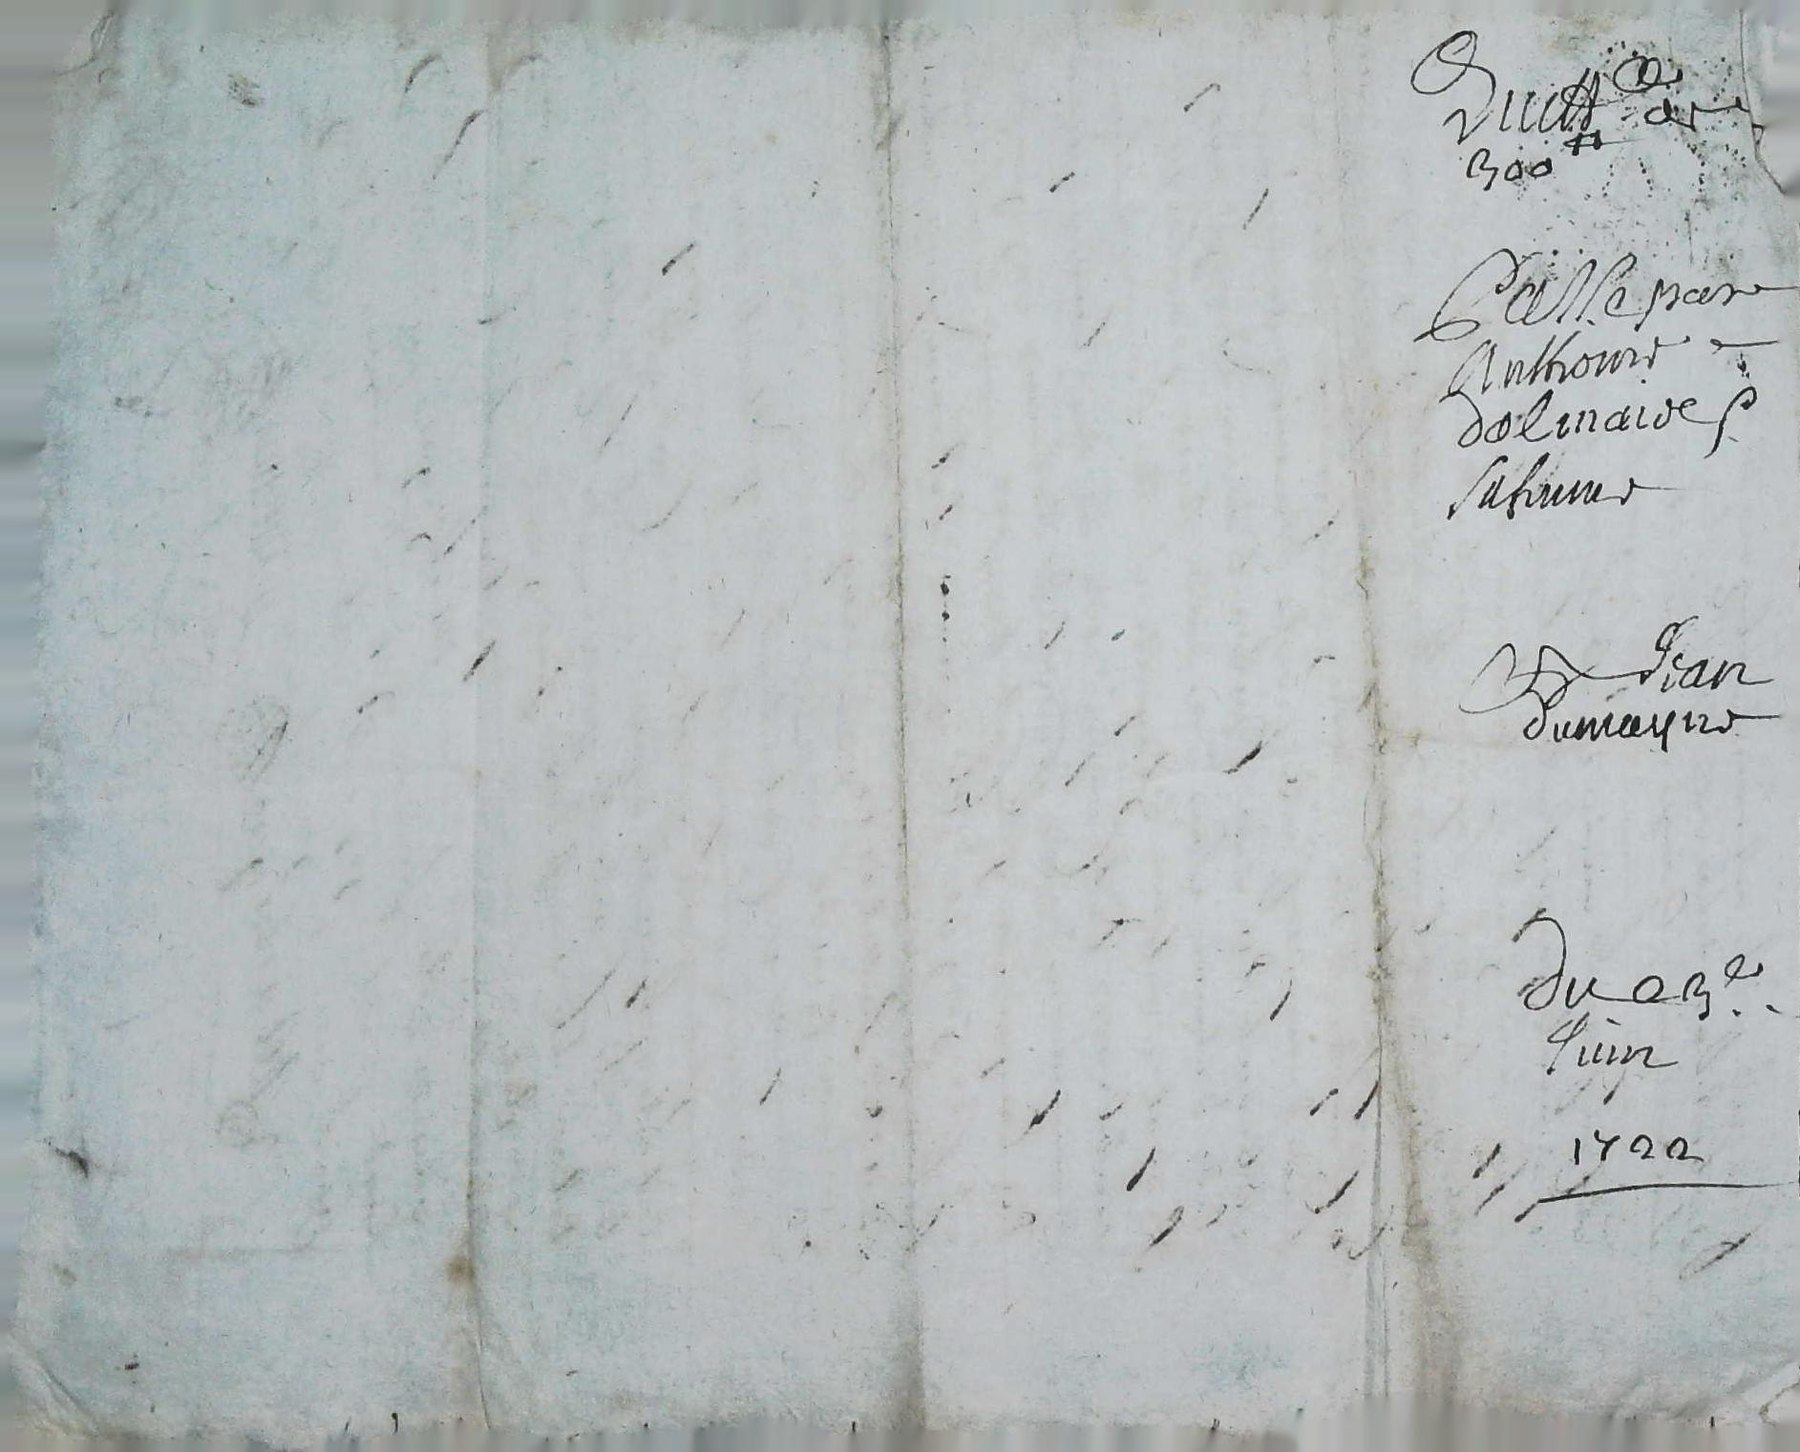 Quitt.ce de
300 ₶
Passé par
Anthoine
dolmaires
A Jean
Dumayne
Du 23e
Juin
1722